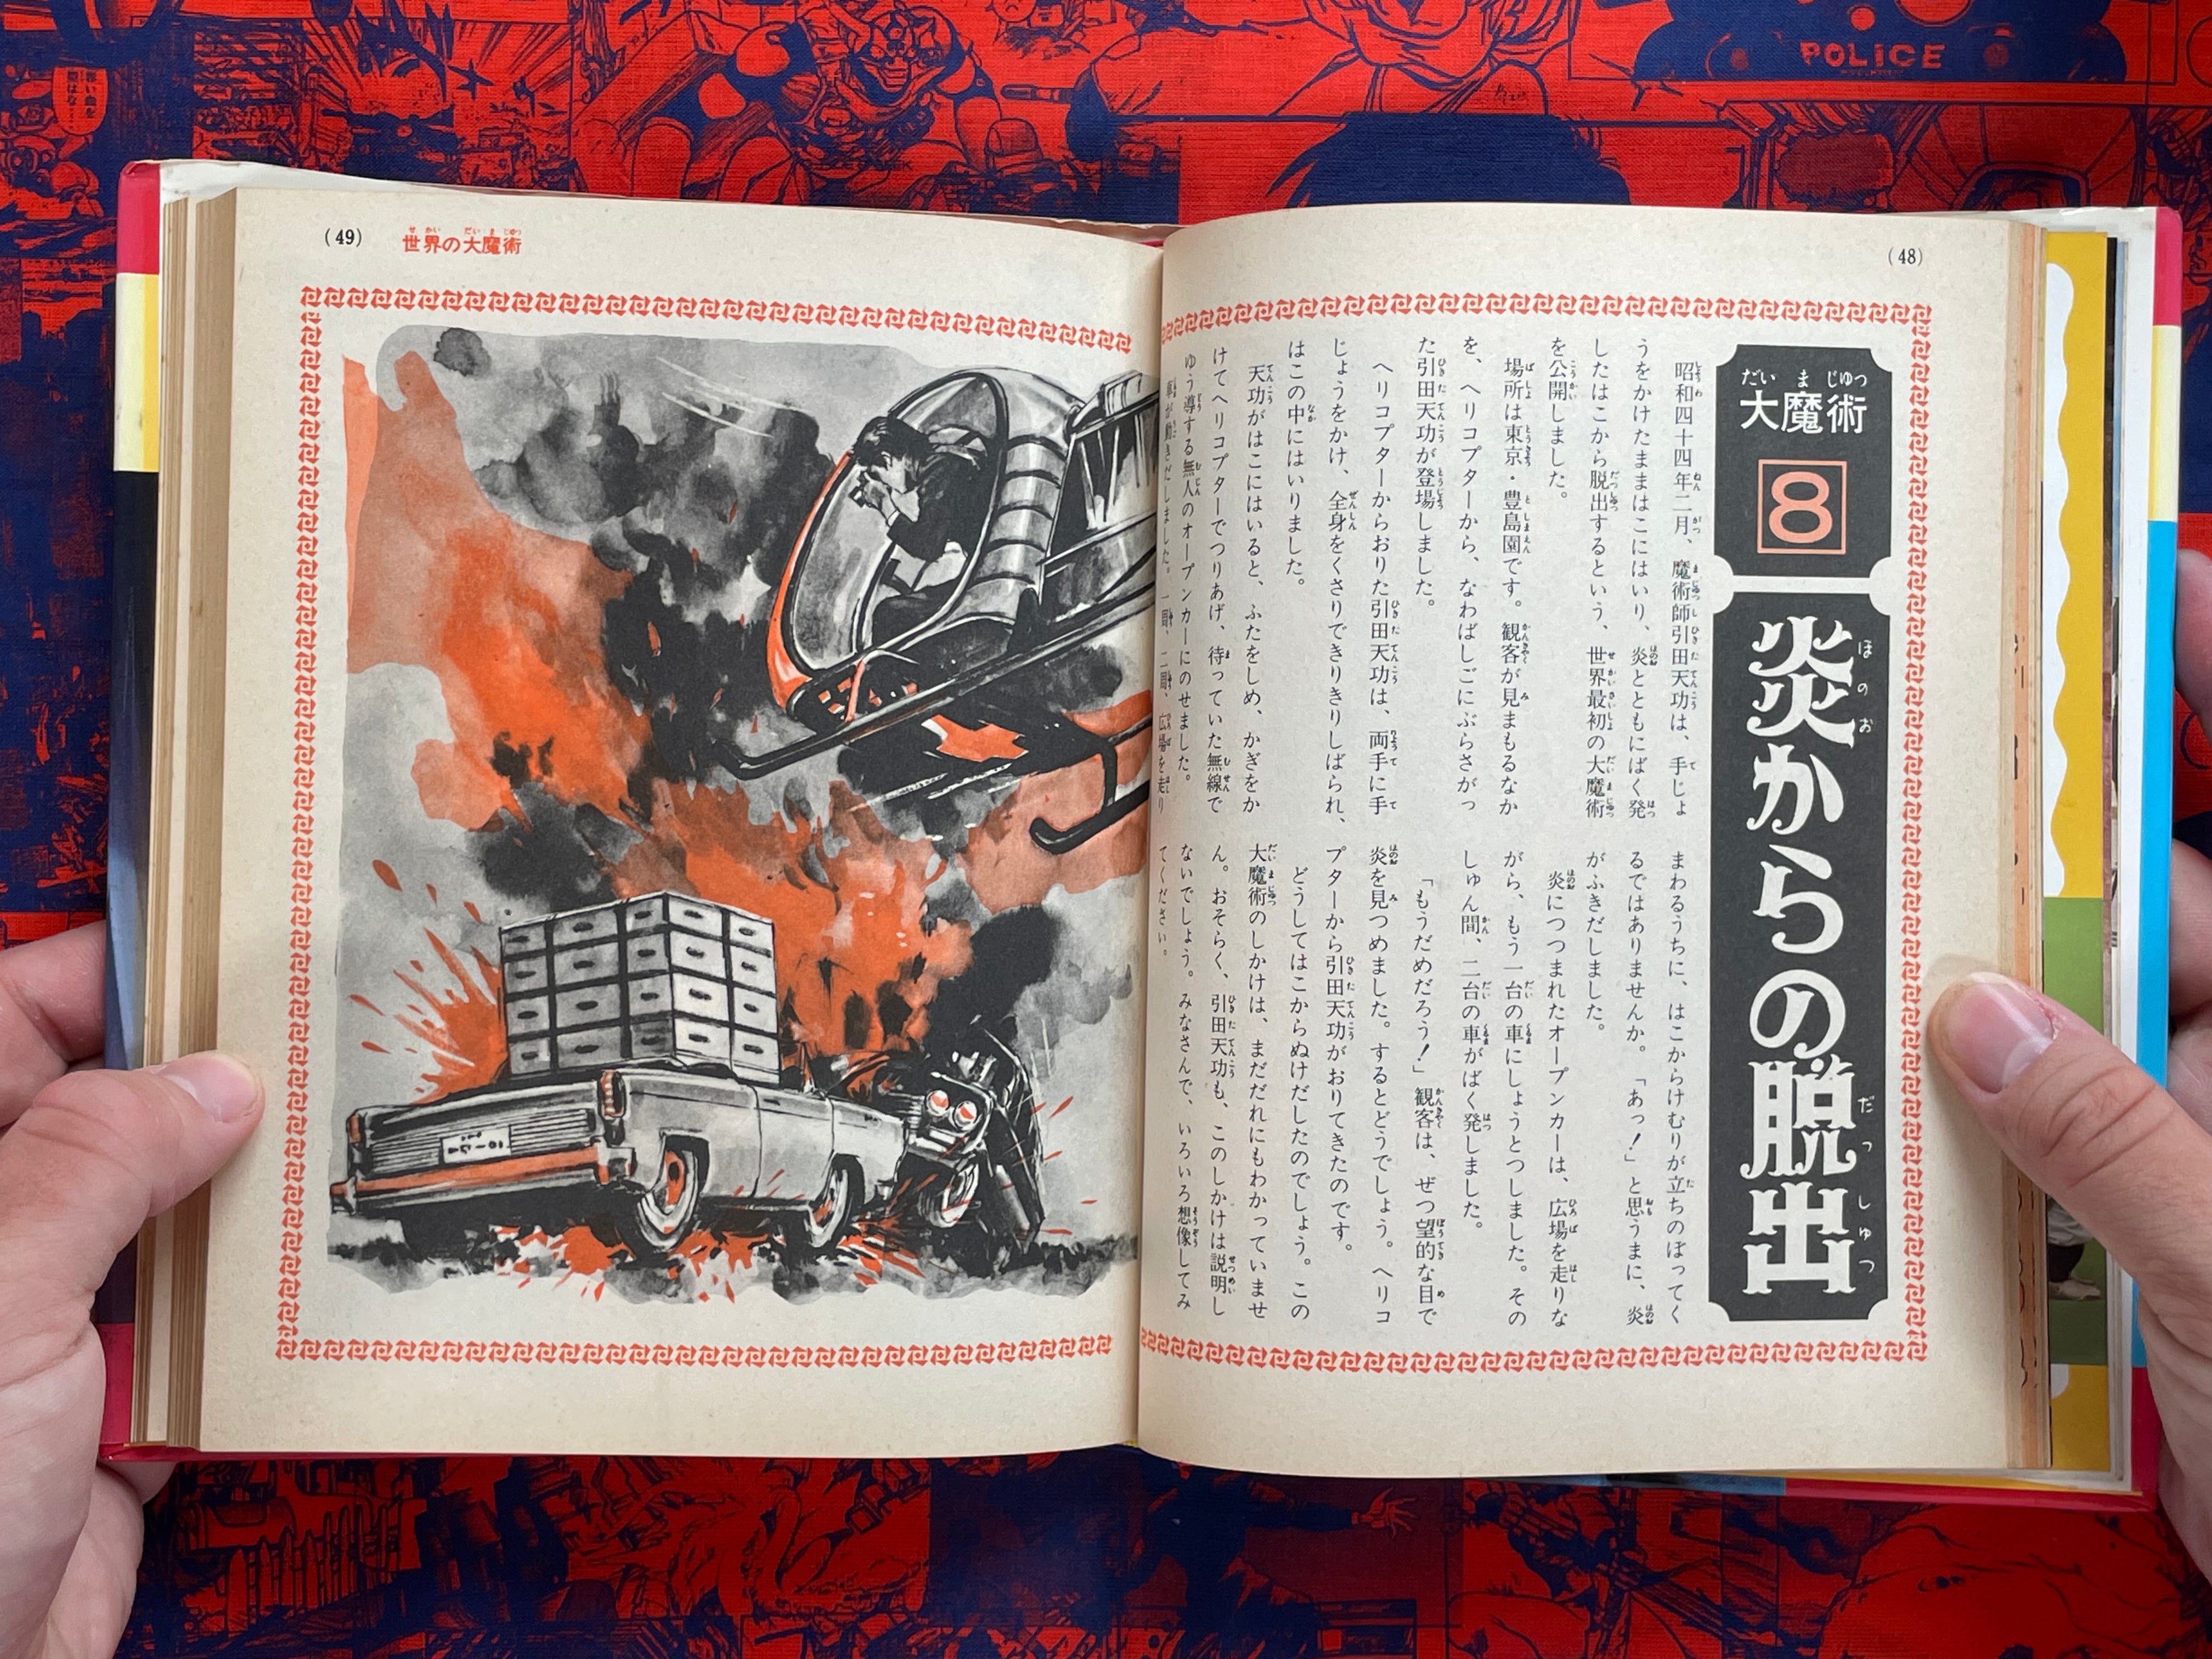 (48)
大魔術
8
炎からの脱出
昭和四十四年二月、魔術師引田天功は、手じょ
うをかけたままはこにはいり、炎とともにばく発
したはこから脱出するという、世界最初の大魔術
を公開しました。
場所は東京・豊島園です。観客が見まもるなか
を、ヘリコプターから、なわばしごにぶらさがっ
た引田天功が登場しました。
ヘリコプターからおりた引田天功は、両手に手
じょうをかけ、全身をくさりできりきりしばられ、
はこの中にはいりました。
天功がはこにはいると、ふたをしめ、かぎをか
けてヘリコプターでつりあげ、待っていた無線で
ゆう導する無人のオープンカーにのせました。
車が動きだしました。一周、二周、広場を走り
まわるうちに、はこからけむりが立ちのぼってく
るではありませんか。「あっ!」と思うまに、炎
がふきだしました。
炎につつまれたオープンカーは、広場を走りな
がら、もう一台の車にしょうとつしました。その
しゅん間、二台の車がばく発しました。
「もうだめだろう!」観客は、ぜつ望的な目で
炎を見つめました。するとどうでしょう。ヘリコ
プターから引田天功がおりてきたのです。
どうしてはこからぬけだしたのでしょう。この
大魔術のしかけは、まだだれにもわかっていませ
ん。おそらく、引田天功も、このしかけは説明し
ないでしょう。みなさんで、いろいろ想像してみ
てください。
(49)
世界の大魔術
POLICE